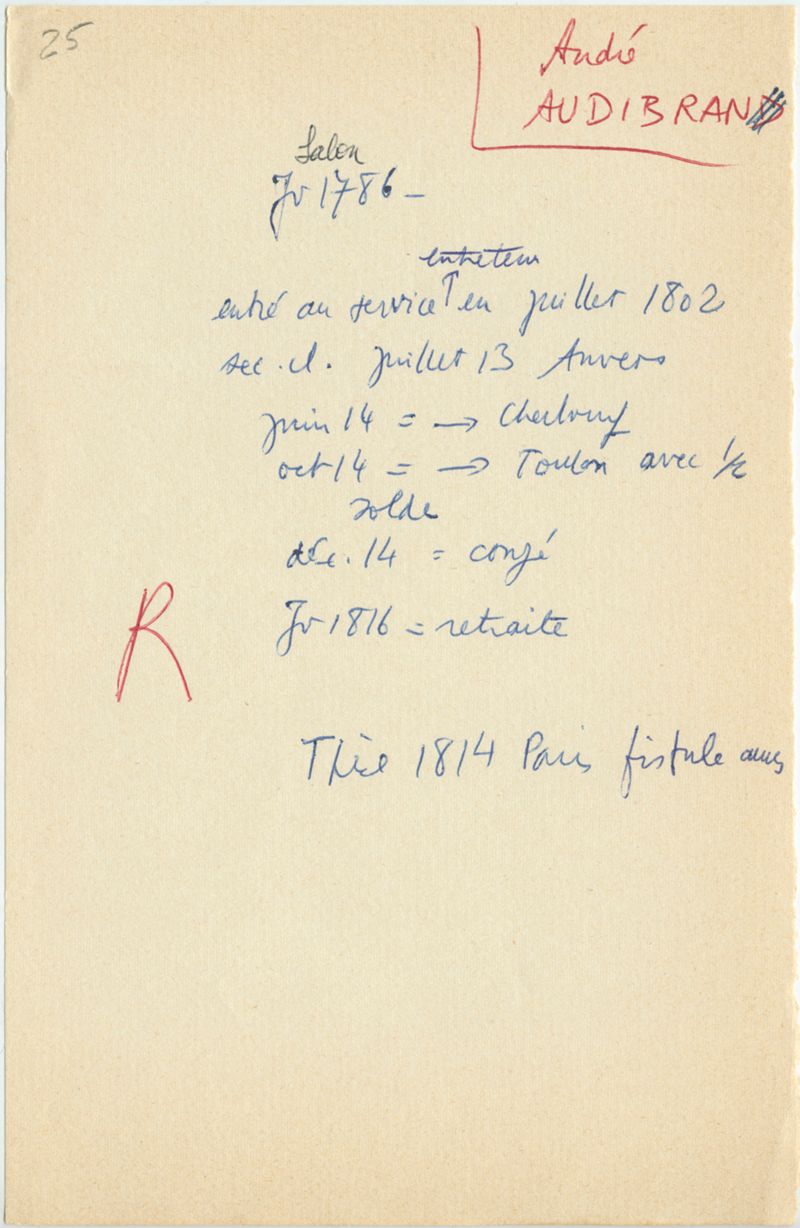 25
André
AUDIBRAN
Salon
Jv 1786 –
entretenu
entré au service ↑ en juillet 1802
sec. cl. juillet 13 Anvers
juin 14 = → Cherbourg
oct 14 = → Toulon avec 1/2
solde
déc. 14 = congé
Jv 1816 = retraite
R
Thèse 1814 Paris fistule anus